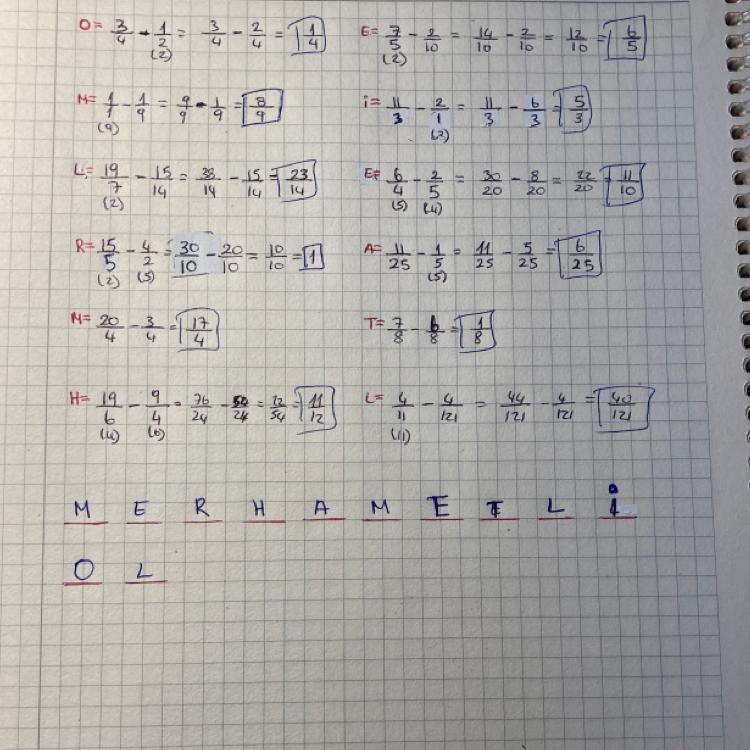 O= 3/4 - 1/2 = 3/4 - 2/4 = 1/4
(2)
E= 7/5 - 2/10 = 14/10 - 2/10 = 12/10 = 6/5
(2)
M= 1/1 - 1/9 = 9/9 - 1/9 = 8/9
(9)
i= 11/3 - 2/1 = 11/3 - 6/3 = 5/3
(2)
L= 19/7 - 15/14 = 38/14 - 15/14 = 23/14
(2)
E= 6/4 - 2/5 = 30/20 - 8/20 = 22/20 = 11/10
(5) (4)
R= 15/5 - 4/2 = 30/10 - 20/10 = 10/10 = 1
(2) (5)
A= 11/25 - 1/5 = 11/25 - 5/25 = 6/25
(5)
M= 20/4 - 3/4 = 17/4
T= 7/8 - 6/8 = 1/8
H= 19/6 - 9/4 = 76/24 - 54/24 = 11/12
(4) (6)
L= 4/11 - 4/121 = 44/121 - 4/121 = 40/121
(11)
M E R H A M E T L i
O L